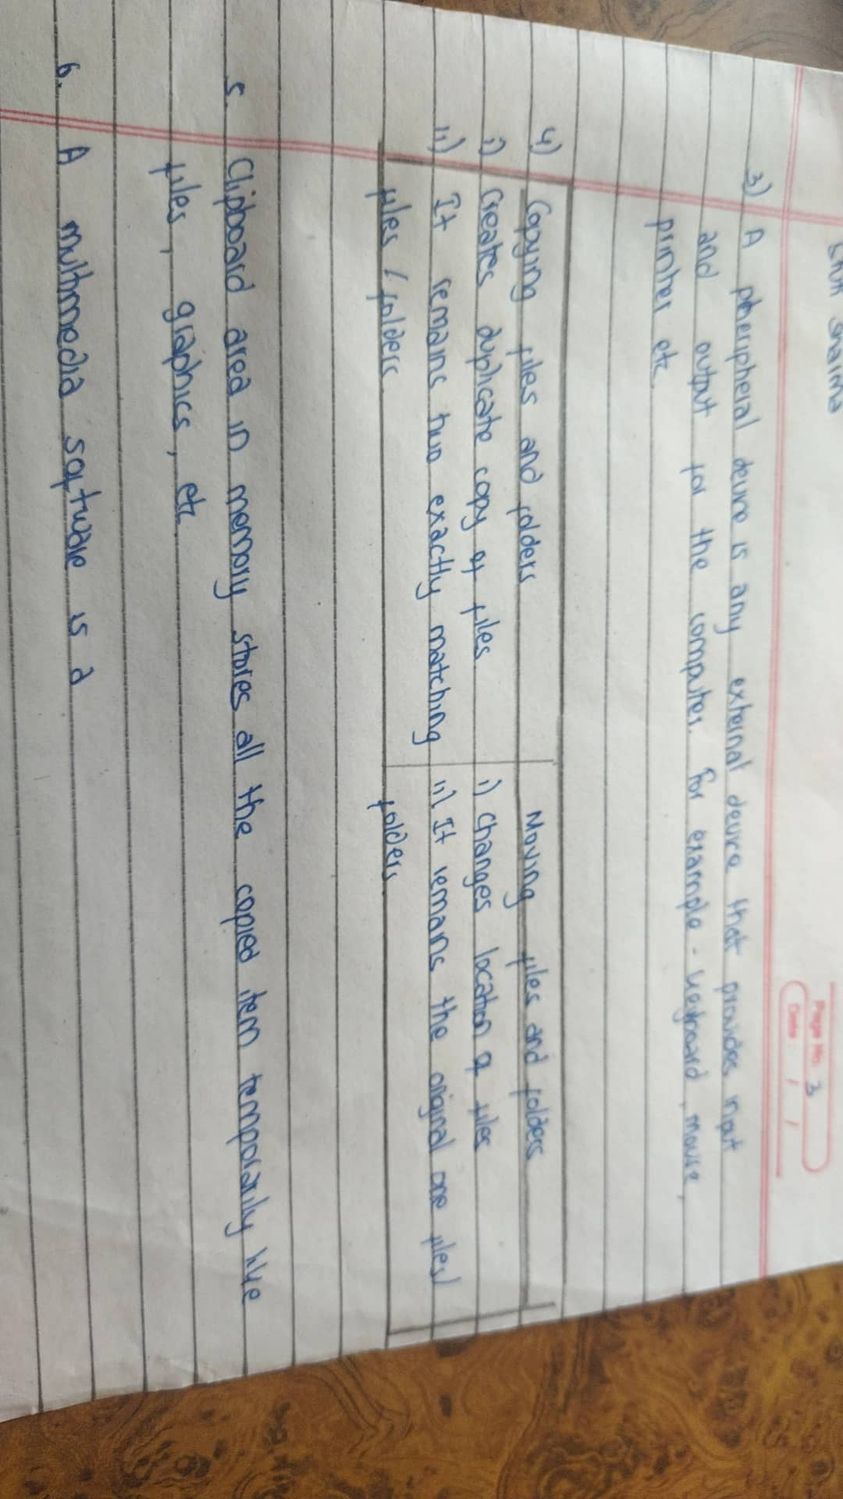 Sharma
Page No. 3
Date / /
3) A pheripheral device is any external device that provides input
and output for the computer. For example - keyboard, mouse,
printer etc.
4) Copying files and folders | Moving files and folders
i) Creates duplicate copy of files | i) Changes location of files
ii) It remains two exactly matching | ii) It remains the original one files/
files / folders. | folders.
5. Clipboard area in memory stores all the copied item temporarily like
files, graphics, etc
6. A multimedia software is a